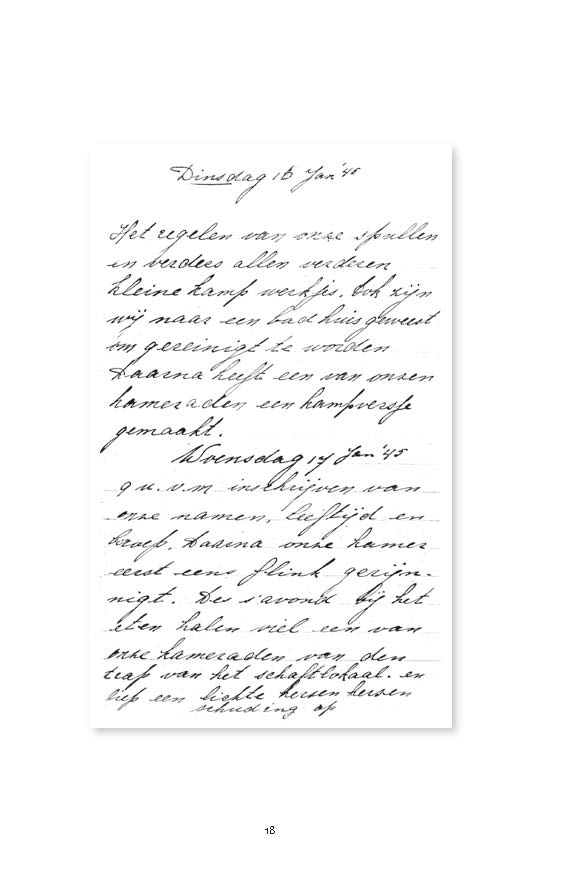 Dinsdag 16 Jan '45
Het regelen van onze spullen
en verders allen verderen
kleine kamp werkjes. Ook zijn
wij naar een bad huis geweest
om gereinigt te worden
Daarna heeft een van onzen
kameraden een kampversje
gemaakt.
Woensdag 17 Jan '45
9 u. v.m inschrijven van
onze namen, leeftijd en
beroep. Daarna onze kamer
eerst eens flink gerijn-
nigt. Des s'avond bij het
eten halen viel een van
onze kameraden van den
trap van het schaftlokaal. en
liep een lichte hersen hersen
schuding op
18